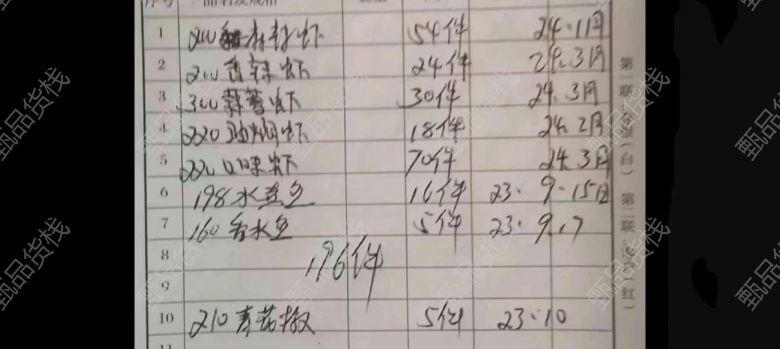 1 200 香麻辣虾 54件 24.11月
2 200香辣虾 24件 24.3月
3 300蒜蓉虾 30件 24.3月
4 220油焖虾 18件 24.2月
5 220口味虾 70件 24.3月
6 198水煮鱼 16件 23.9.15日
7 160香水鱼 5件 23.9.7
8 196件
9
10 210青花椒 5件 23.10
第一联
(白)
第二联
红)
甄品货栈
甄品货栈
甄品货栈
甄品货栈
甄品货栈
甄品货栈
甄品货栈
甄品货栈